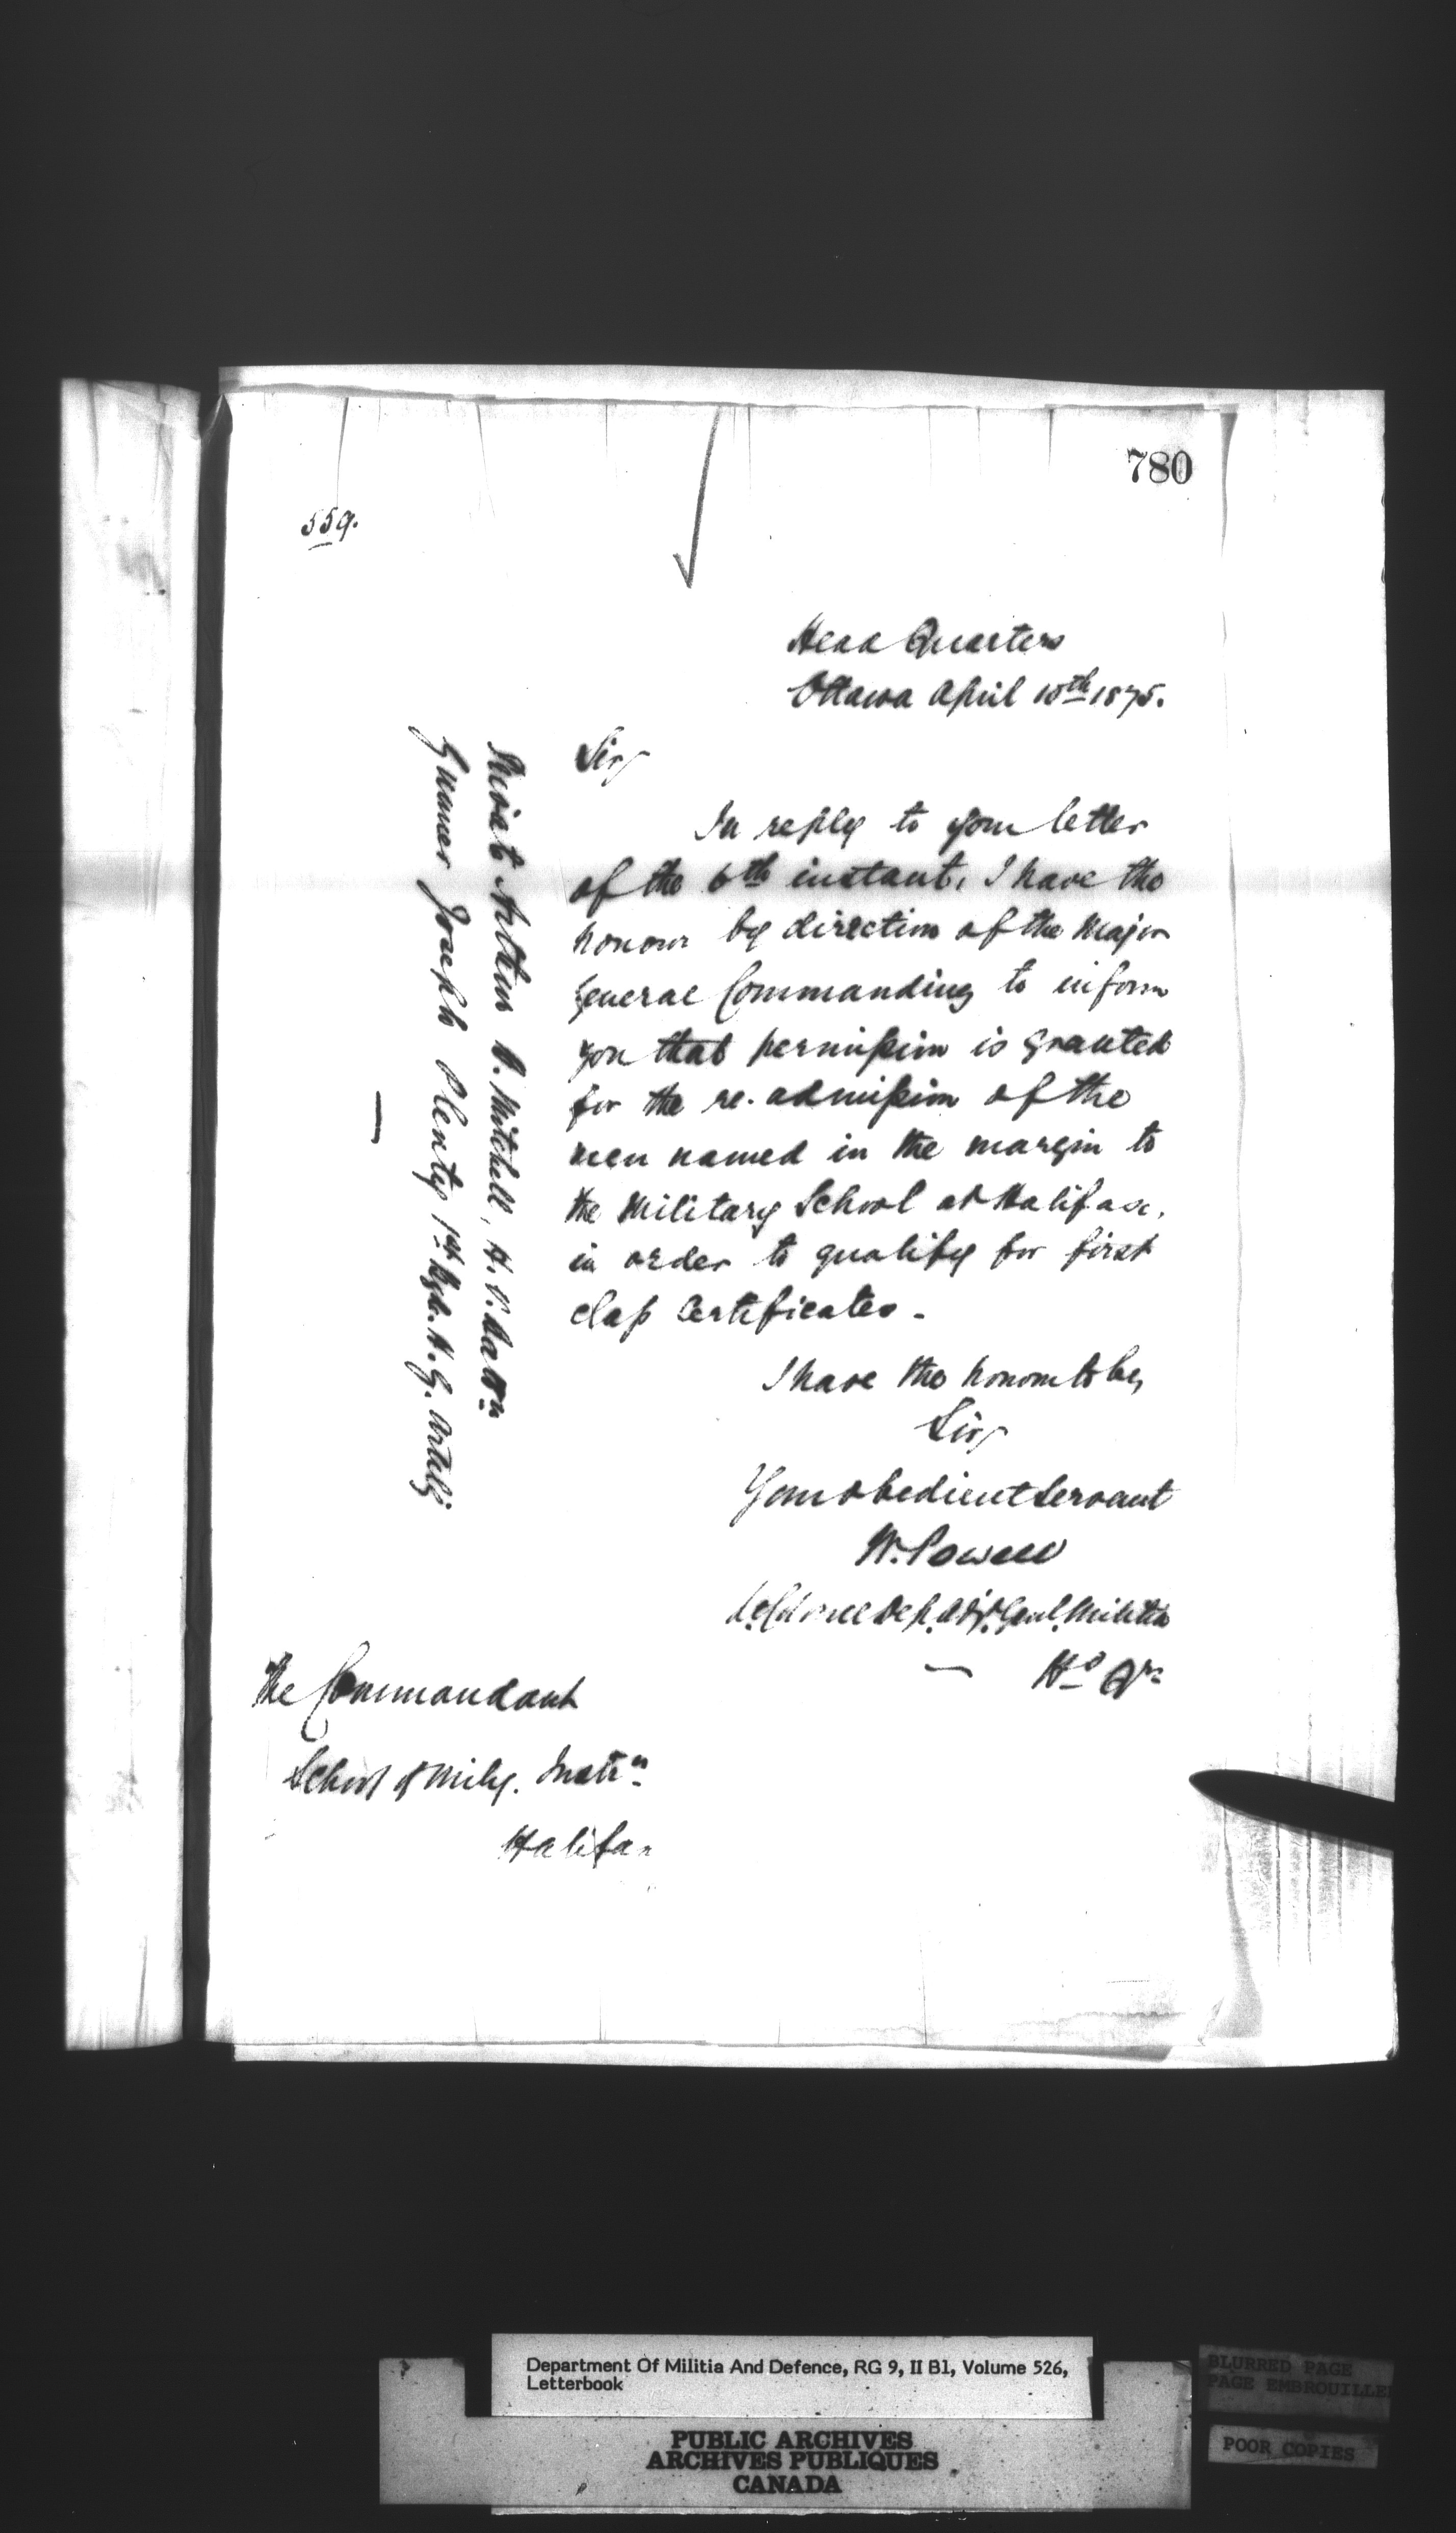 780
559.
Head Quarters
Ottawa April 10th 1875.
Sir,
In reply to your letter
of the 6th instant, I have the
honour by direction of the Major
General Commanding to inform
you that permission is granted
for the re-admission of the
men named in the margin to
the Military School at Halifax,
in order to qualify for first
class Certificates.
Privat Arthur Mitchell, H. V. Battn
Gunner Joseph Plenty 1st H. G. Artily
I have the honour to be,
Sir,
Your obedient Servant
W. Powell
Lt. Colonel Dep. Adjt. Genl. Militia
Hd Qrs
The Commandant
School of Mily. Instn
Halifax
Department Of Militia And Defence, RG 9, II B1, Volume 526,
Letterbook
PUBLIC ARCHIVES
ARCHIVES PUBLIQUES
CANADA
BLURRED PAGE
PAGE EMBROUILLE
POOR COPIES